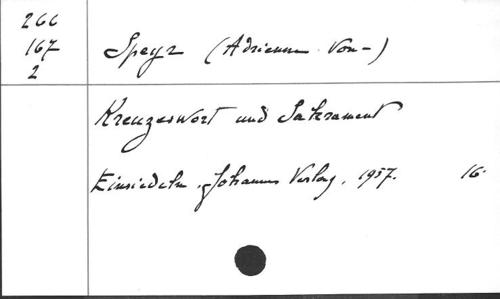 266
167
2
Speyr (Adrienne Von-)
Kreuzeswort und Sakrament
Einsiedeln, Johannes Verlag, 1957. 16.